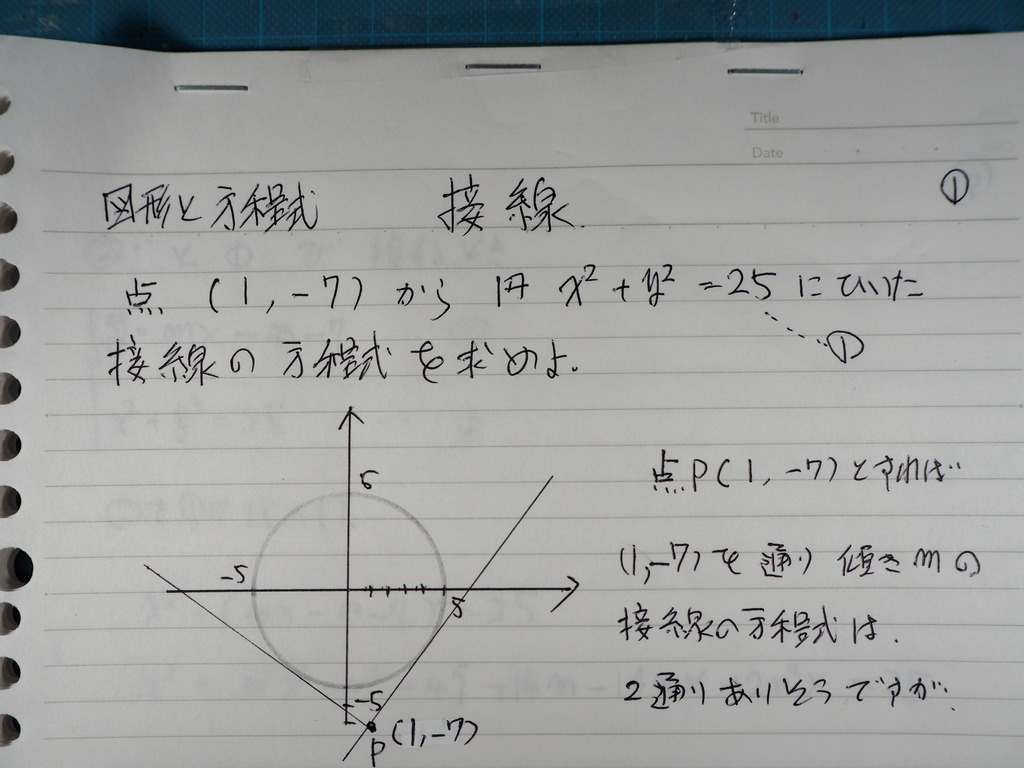 Title
Date
図形と方程式 接線. ①
点 (1, -7) から 円 x² + y² = 25 にひいた
①
接線の方程式を求めよ.
点P(1, -7)とすれば
(1, -7)を通り 傾きmの
接線の方程式は.
2通りありそうですが.
5
-5
5
-5
P(1, -7)